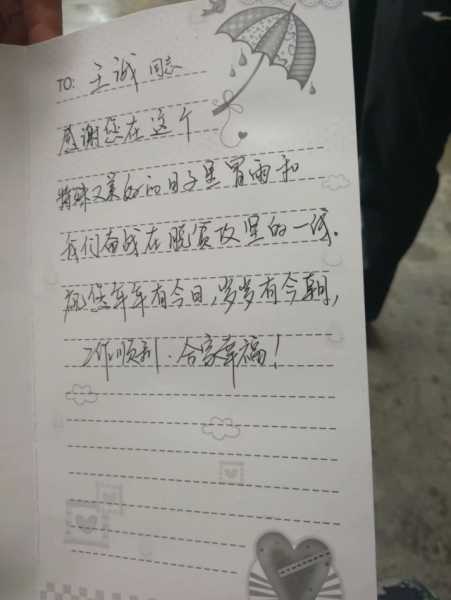 TO: 王诚 同志
感谢您在这个
特殊又美好的日子里冒雨和
我们奋战在脱贫攻坚的一线.
祝您年年有今日,岁岁有今朝,
工作顺利.合家幸福!